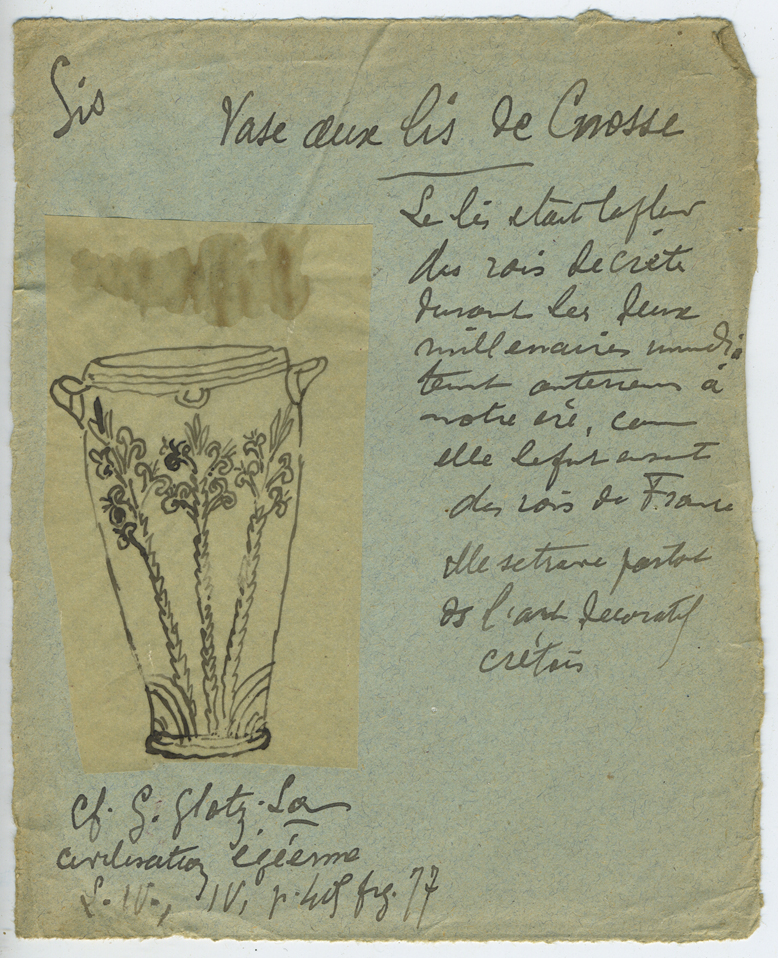 Lis
Vase aux lis de Cnosse
Le lis etait la fleur
des rois de crète
durant les deux
millenaires immédia
tement anterieurs à
notre ère, com
elle le fut avant
des rois de France
elle se trouve partout
ds l'art decoratif
crétois
Cf. G. Glotz. La
civilisation égéenne
L. IV., IV, p. fig. 77